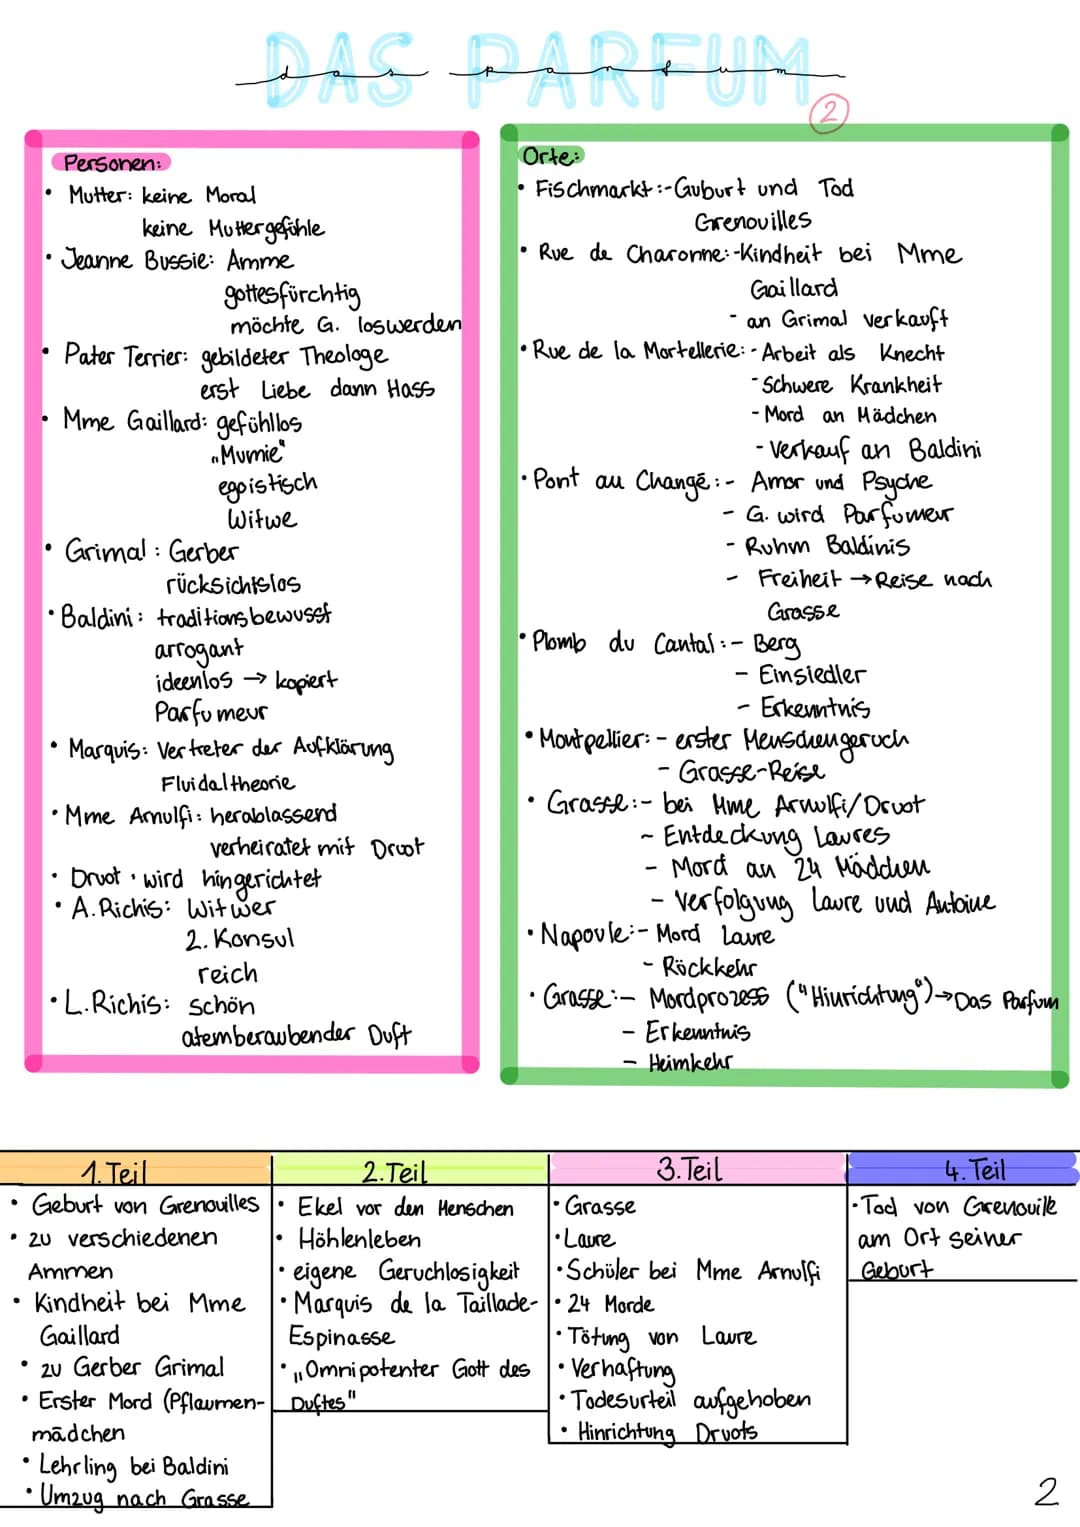 DAS PARFUM
das parfum
2
Personen:
• Mutter: keine Moral
keine Muttergefühle
• Jeanne Bussie: Amme
gottesfürchtig
möchte G. loswerden
• Pater Terrier: gebildeter Theologe
erst Liebe dann Hass
• Mme Gaillard: gefühllos
„Mumie“
egoistisch
Witwe
• Grimal: Gerber
rücksichtslos
• Baldini: traditionsbewusst
arrogant
ideenlos → kopiert
Parfumeur
• Marquis: Vertreter der Aufklärung
Fluidaltheorie
• Mme Arnulfi: herablassend
verheiratet mit Druot
• Druot: wird hingerichtet
• A. Richis: Witwer
2. Konsul
reich
• L. Richis: schön
atemberaubender Duft
Orte:
• Fischmarkt: - Guburt und Tod
Grenouilles
• Rue de Charonne: - Kindheit bei Mme
Gaillard
- an Grimal verkauft
• Rue de la Mortellerie: - Arbeit als Knecht
- Schwere Krankheit
- Mord an Mädchen
- Verkauf an Baldini
• Pont au Changé: - Amor und Psyche
- G. wird Parfumeur
- Ruhm Baldinis
- Freiheit → Reise nach
Grasse
• Plomb du Cantal: - Berg
- Einsiedler
- Erkenntnis
• Montpellier: - erster Menschengeruch
- Grasse-Reise
• Grasse: - bei Mme Arnulfi/Druot
- Entdeckung Laures
- Mord an 24 Mädchen
- Verfolgung Laure und Antoine
• Napoule: - Mord Laure
- Rückkehr
• Grasse: - Mordprozess ("Hinrichtung") → Das Parfum
- Erkenntnis
- Heimkehr
1. Teil
• Geburt von Grenouilles
• zu verschiedenen
Ammen
• Kindheit bei Mme
Gaillard
• zu Gerber Grimal
• Erster Mord (Pflaumen-
mädchen
• Lehrling bei Baldini
• Umzug nach Grasse
2. Teil
• Ekel vor den Menschen
• Höhlenleben
• eigene Geruchlosigkeit
• Marquis de la Taillade-
Espinasse
• „Omnipotenter Gott des
Duftes"
3. Teil
• Grasse
• Laure
• Schüler bei Mme Arnulfi
• 24 Morde
• Tötung von Laure
• Verhaftung
• Todesurteil aufgehoben
• Hinrichtung Druots
4. Teil
• Tod von Grenouille
am Ort seiner
Geburt
2